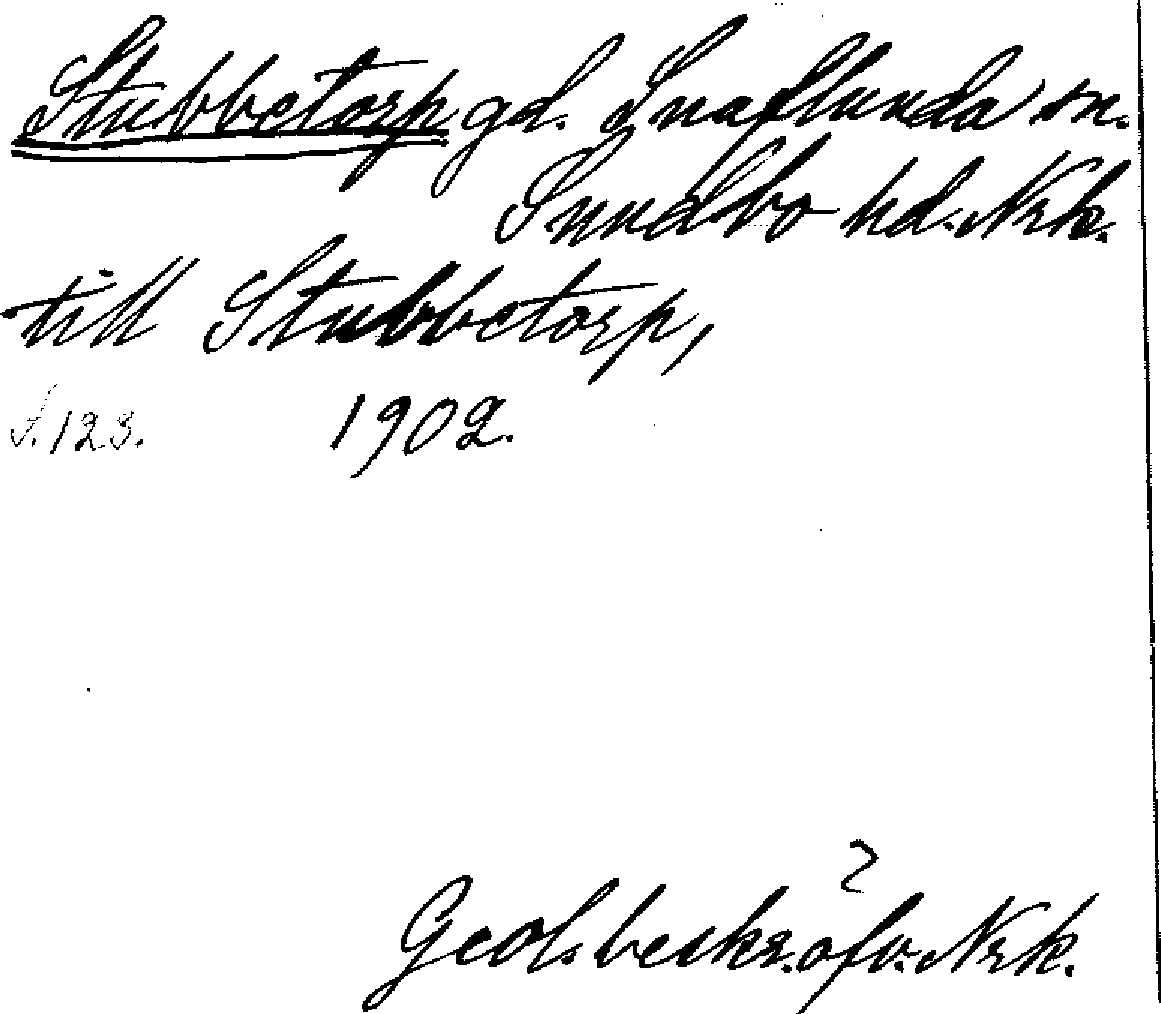 Stubbetorp gd. Snaflunda sn.
Sundbo hd. Nrk.
till Stubbetorp,
S. 123. 1902.
Geol. beskr. öfv. Nrk.